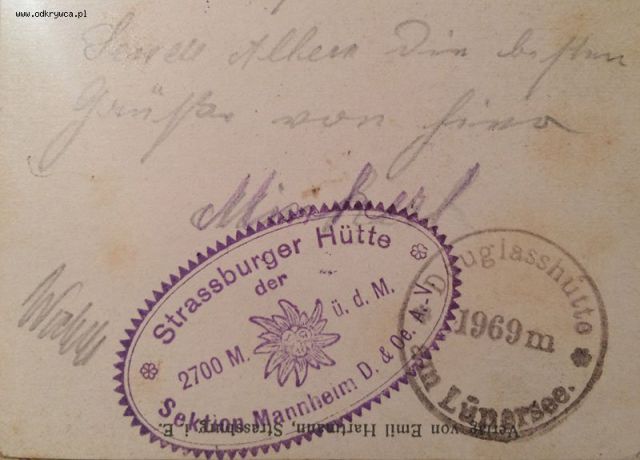 www.odkrywca.pl
Allen die besten
Grüße von hier
Strassburger Hütte
der
2700 M. ü. d. M.
Sektion Mannheim D. & Oe. A.-V.
Douglasshütte
1969 m
am Lünersee.
Verlag von Emil Hartmann, Strassburg i. E.